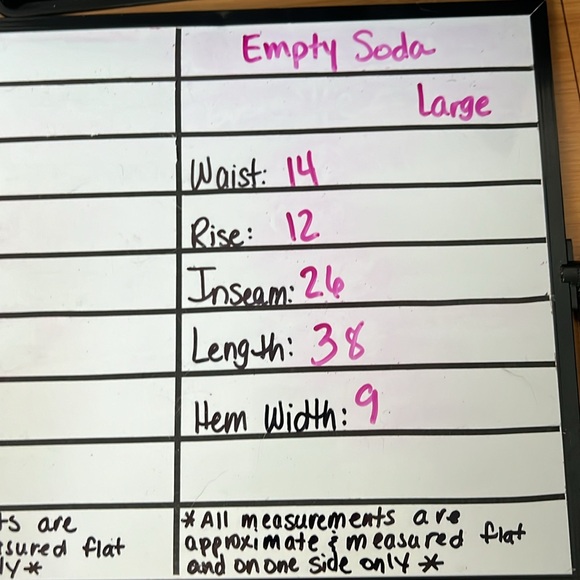 Empty Soda
Large
Waist: 14
Rise: 12
Inseam: 26
Length: 38
Hem Width: 9
ts are
sured flat
ly*
*All measurements are
approximate & measured flat
and on one side only *